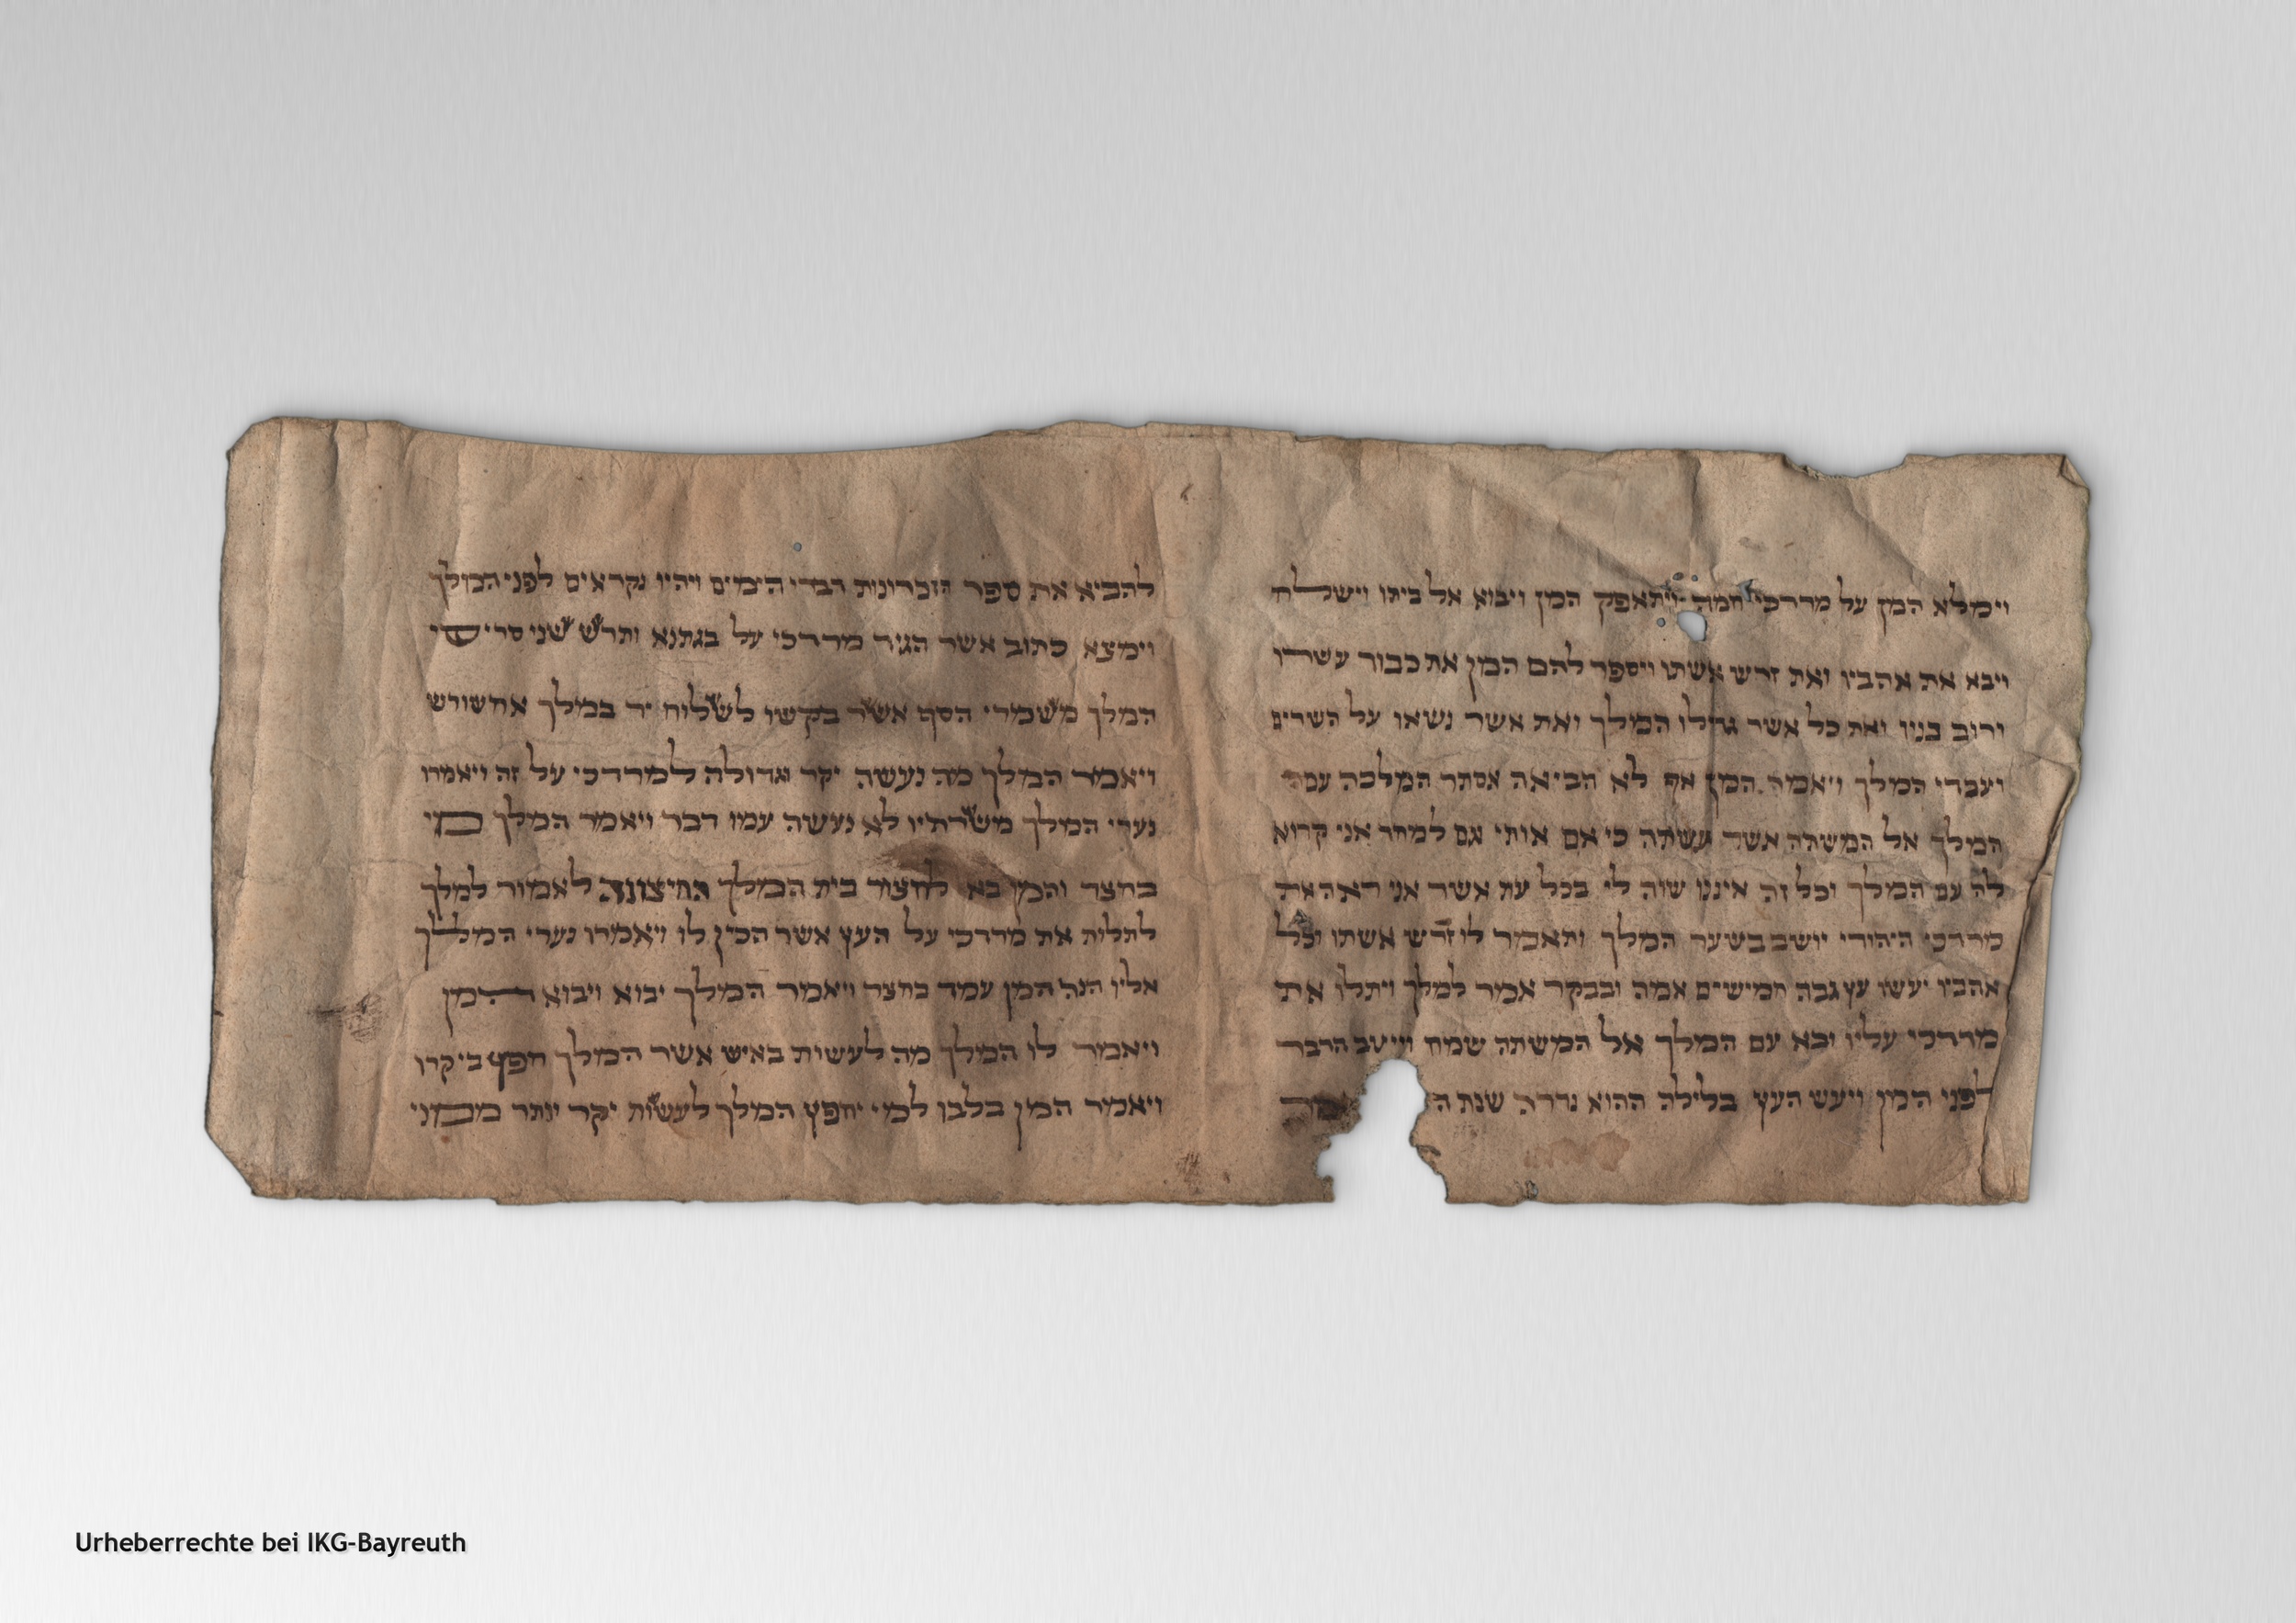 וימלא המן על מרדכי חמה ויתאפק המן ויבוא אל ביתו וישלח
ויבא את אהביו ואת זרש אשתו ויספר להם המן את כבוד עשרו
ורוב בניו ואת כל אשר גדילו המלך ואת אשר נשאו על השרים
ועבדי המלך ויאמר המן אף לא הביאה אסתר המלכה עם
המלך אל המשתה אשר עשתה כי אם אותי וגם למחר אני קרוא
לה עם המלך וכל זה איננו שוה לי בכל עת אשר אני ראה את
מרדכי היהודי יושב בשער המלך ותאמר לו זרש אשתו וכל
אהביו יעשו עץ גבה חמישים אמה ובבקר אמר למלך ויתלו את
מרדכי עליו ובא עם המלך אל המשתה שמח וייטב הדבר
לפני המן ויעש העץ בלילה ההוא נדדה שנת
להביא את ספר הזכרונות דברי הימים ויהיו נקראים לפני המלך
וימצא כתוב אשר הגיד מרדכי על בגתנא ותרש שני סריסי
המלך משמרי הסף אשר בקשו לשלוח יד במלך אחשורש
ויאמר המלך מה נעשה יקר וגדולה למרדכי על זה ויאמרו
נערי המלך משרתיו לא נעשה עמו דבר ויאמר המלך מי
בחצר והמן בא לחצר בית המלך החיצונה לאמור למלך
לתלות את מרדכי על העץ אשר הכין לו ויאמרו נערי המלך
אליו הנה המן עמד בחצר ויאמר המלך יבוא ויבוא המן
ויאמר לו המלך מה לעשות באיש אשר המלך חפץ ביקרו
ויאמר המן בלבו למי יחפץ המלך לעשות יקר יותר ממני
Urheberrechte bei IKG-Bayreuth